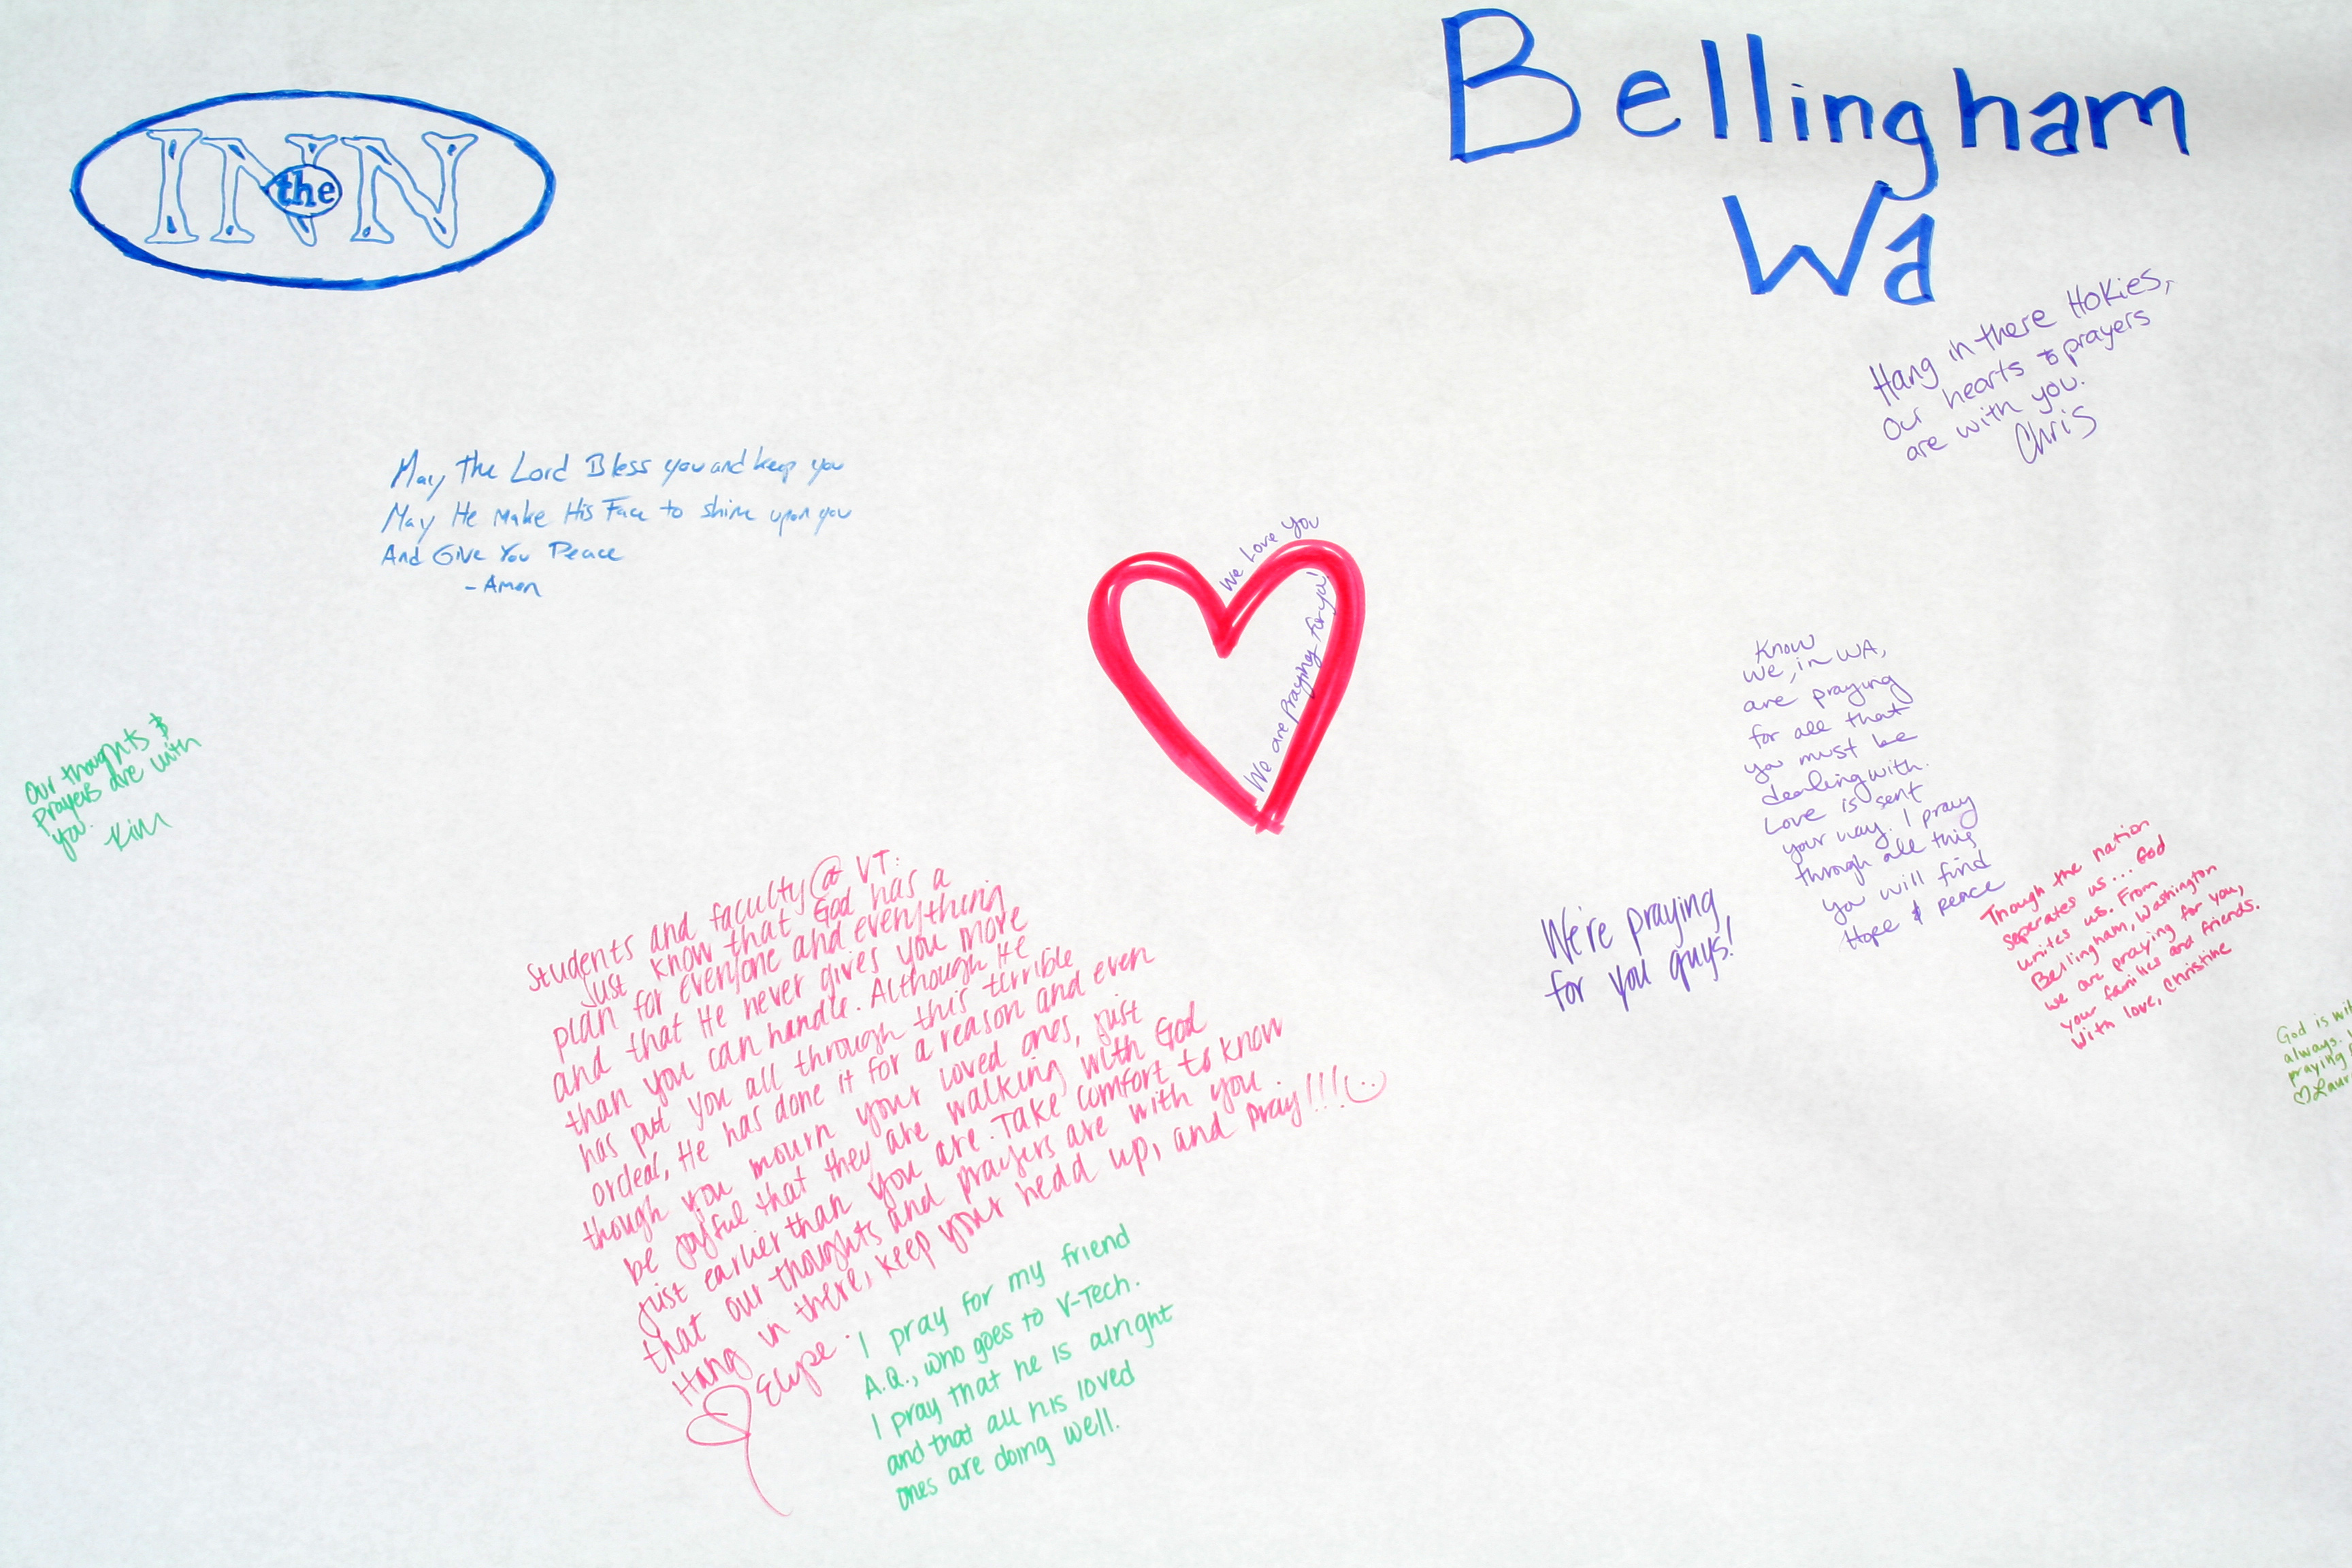 the INN
Bellingham
Wa
Hang in there Hokies,
Our hearts & prayers
are with you.
Chris
May The Lord Bless you and keep you
May He make His Face to shine upon you
And Give You Peace
- Amen
We Love You
We are praying for you!
Our thoughts &
prayers are with
you.
Kim
Know
we, in WA,
are praying
for all that
you must be
dealing with.
Love is sent
your way. I pray
through all this
you will find
Hope & peace
We're praying
for you guys!
Though the nation
seperates us... God
unites us. From
Bellingham, Washington
we are praying for you,
your families and friends.
With love, Christine
God is
always.
praying
Students and faculty @ VT:
Just know that God has a
plan for everyone and everything
and that He never gives you more
than you can handle. Although He
has put you all through this terrible
ordeal, He has done it for a reason and even
though you mourn your loved ones, just
be joyful that they are walking with God
just earlier than you are. Take comfort to know
that our thoughts and prayers are with you.
Hang in there, keep your head up, and pray!!!
I pray for my friend
A.Q., who goes to V-Tech.
I pray that he is alright
and that all his loved
ones are doing well.